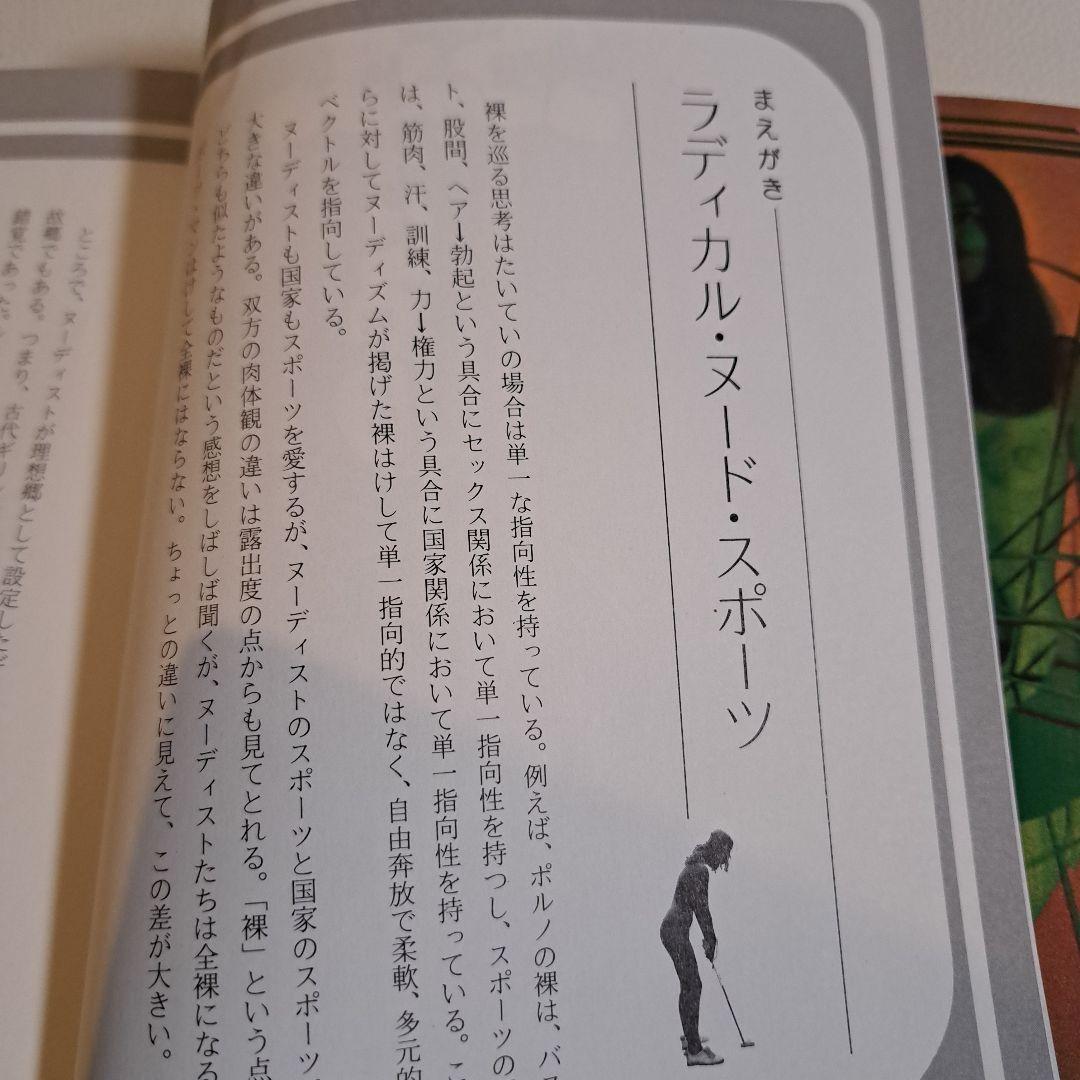 まえがき
ラディカル・ヌード・スポーツ
裸を巡る思考はたいていの場合は単一な指向性を持っている。例えば、ポルノの裸は、バス
ト、股間、ヘア→勃起という具合にセックス関係において単一指向性を持つし、スポーツの
は、筋肉、汗、訓練、力→権力という具合に国家関係において単一指向性を持っている。こ
らに対してヌーディズムが掲げた裸はけして単一指向的ではなく、自由奔放で柔軟、多元的
ベクトルを指向している。
ヌーディストも国家もスポーツを愛するが、ヌーディストのスポーツと国家のスポーツ
大きな違いがある。双方の肉体観の違いは露出度の点からも見てとれる。「裸」という点
どちらも似たようなものだという感想をしばしば聞くが、ヌーディストたちは全裸になる
して全裸にはならない。ちょっとの違いに見えて、この差が大きい。
ところで、ヌーディストが理想郷として設定した
故郷でもある。つまり、古代ギリ
であった。